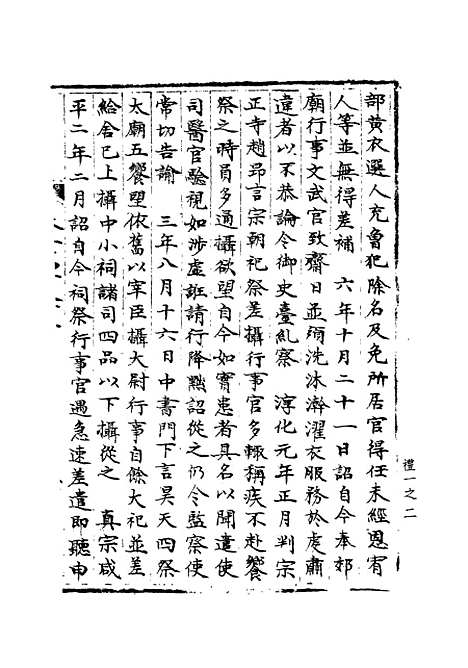 部黄衣選人充曾犯除名及免所居官得任未經恩宥
人等並無得差補　六年十月二十一日詔自今奉郊
廟行事文武官致齋日並須洗沐澣濯衣服務於虔肅
違者以不恭論令御史臺糺察　淳化元年正月判宗
正寺趙昂言宗廟祀祭差攝行事官多輙稱疾不赴饗
祭之時員多通攝欲望自今如實患者具名以聞遣使
司醫官驗視如涉虛誑請行降黜詔從之仍令監察使
常切告諭　三年八月十六日中書門下言昊天四祭
太廟五饗望依舊以宰臣攝太尉行事自餘大祀並差
給舍已上攝中小祠諸司四品以下攝從之　真宗咸
平二年二月詔自今祠祭行事官遇急速差遣即聽申
禮一之二